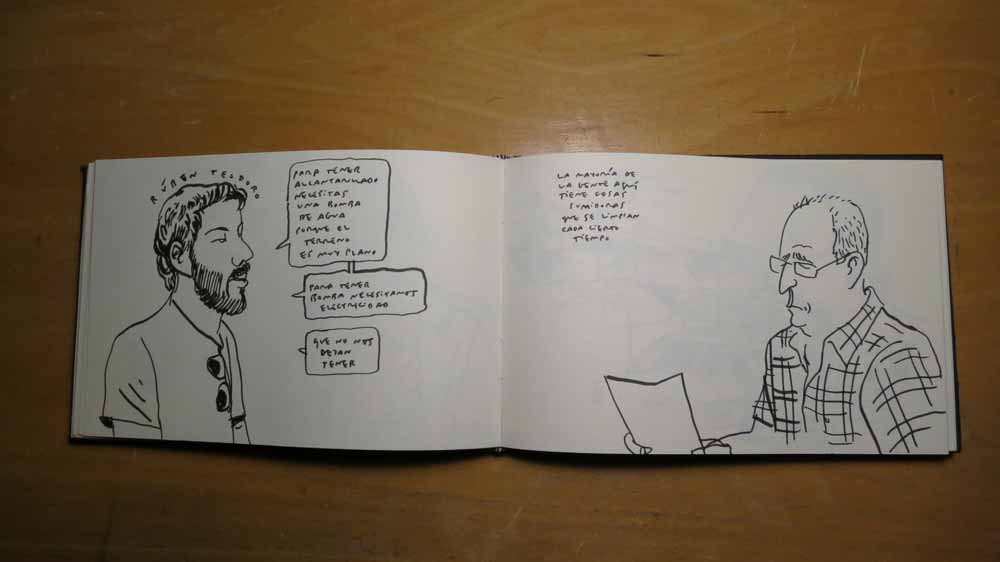 RÚBEN TEODORO
PARA TENER
ALCANTARILLADO
NECESITAS
UNA BOMBA
DE AGUA
PORQUE EL
TERRENO
ES MUY PLANO
PARA TENER
BOMBA NECESITAMOS
ELECTRICIDAD
QUE NO NOS
DEJAN
TENER
LA MAYORÍA DE
LA GENTE AQUÍ
TIENE COSAS
SUMIDORAS
QUE SE LIMPIAN
CADA CIERTO
TIEMPO